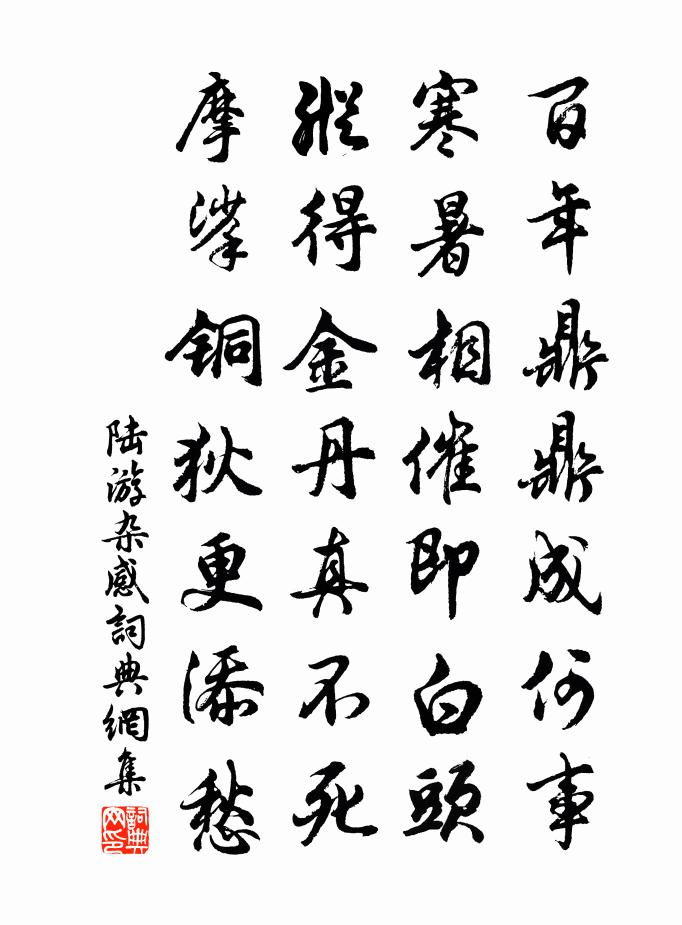 百年鼎鼎成何事
寒暑相催即白頭
縱得金丹真不死
摩挲銅狄更添愁
陆游杂感詞典網集
詞典网印